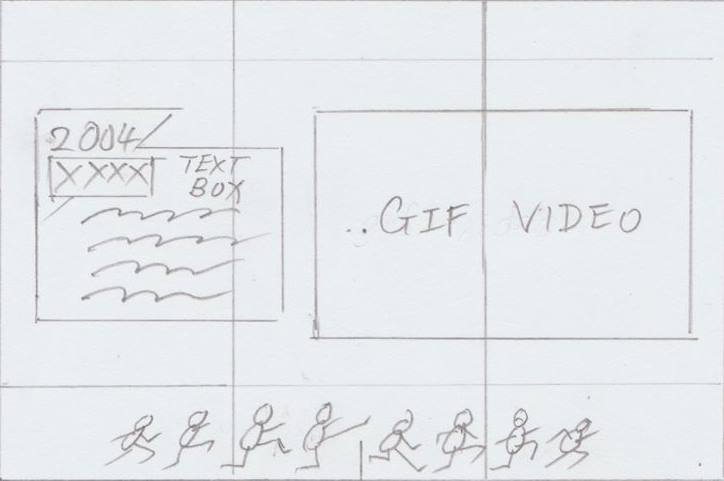 2004
XXXX
TEXT
BOX
..GIF VIDEO